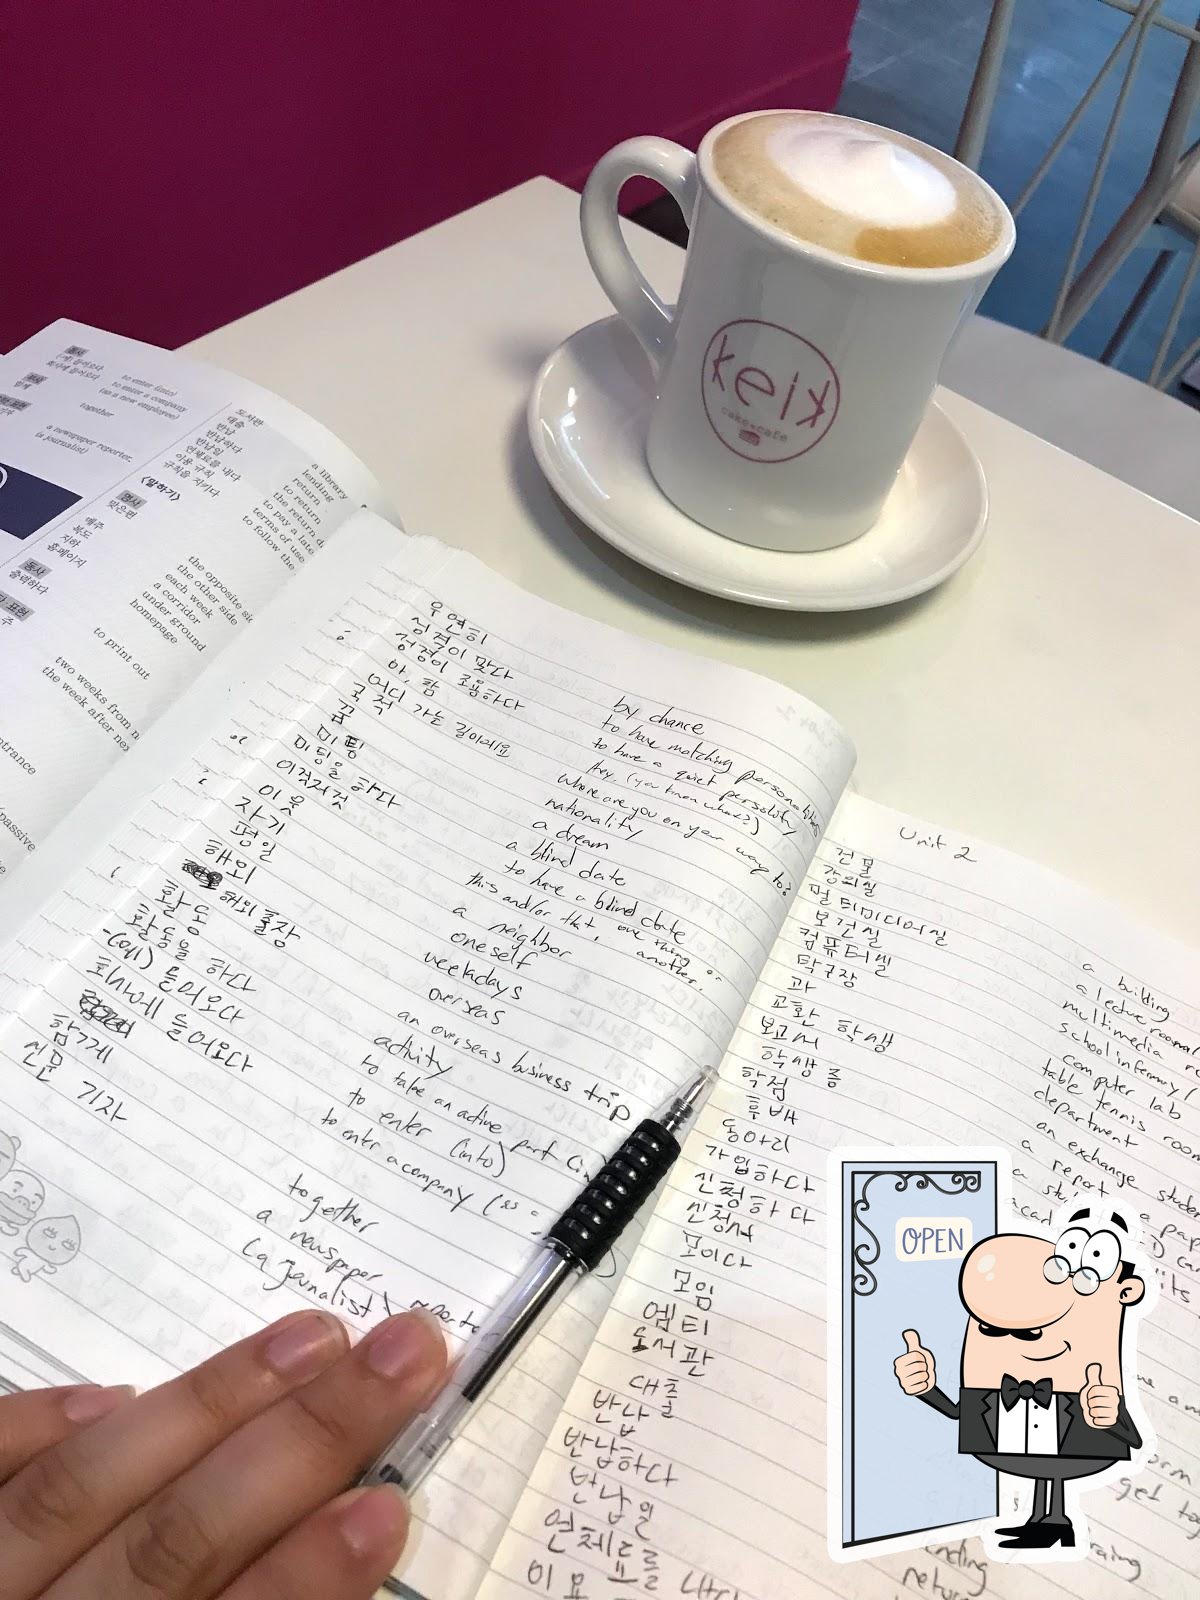 keik
cake+cafe
동사
들어오다
to enter (into)
회사에 들어오다
to enter a company
(as a new employee)
함께
together
a newspaper reporter,
(a journalist)
도서관
대출
반납
반납하다
반납일
연체료를 내다
이용 규칙
규칙을 지키다
<말하기>
a library
lending
return
to return
the return d
to pay a late
terms of use
to follow the
명사
맞은편
매주
복도
지하
홈페이지
the opposite si
the other side
each week
a corridor
under ground
homepage
동사
출력하다
to print out
표현
two weeks from n
the week after nex
우연히
by chance
성격이 맞다
to have matching personalities
성격이 조용하다
to have a quiet personality
아, 참
hey, (you know what?)
어디 가는 길이에요
where are you on your way to?
국적
nationality
꿈
a dream
미팅
a blind date
미팅을 하다
to have a blind date
이것저것
this and/or that, one thing or another.
이웃
a neighbor
자기
oneself
평일
weekdays
해외
overseas
해외 출장
an overseas business trip
활동
activity
활동을 하다
to take an active part (in
-(에) 들어오다
to enter (into)
회사에 들어오다
to enter a company (as a
함께
together
신문 기자
a newspaper reporter
(a journalist)
Unit 2
건물
a building
강의실
a lecture room
멀티미디어실
multimedia
보건실
school infirmary /
컴퓨터실
computer lab
탁구장
table tennis room
과
department
교환 학생
an exchange studen
보고서
a report
학생증
학점
후배
동아리
가입하다
신청하다
신청서
모이다
모임
엠티
도서관
대출
반납
반납하다
반납일
연체료를 내다
OPEN
get tog
nding
return